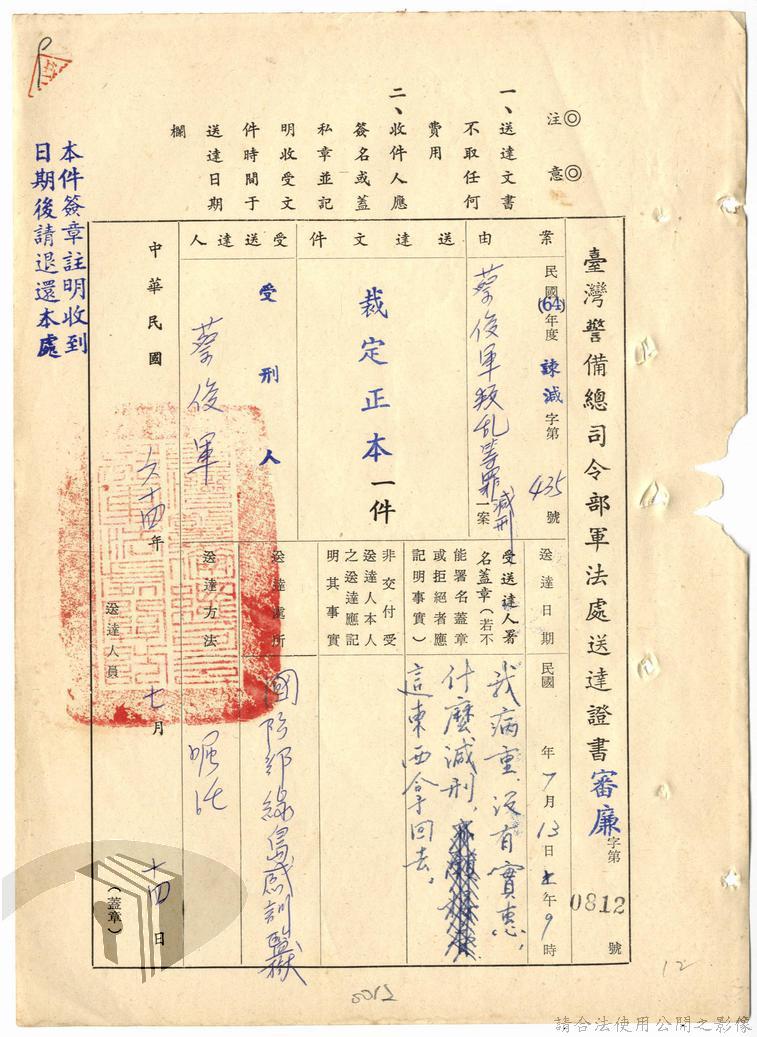 ◎注意◎
一、送達文書
不取任何
費用
二、收件人應
簽名或蓋
私章並記
明收受文
件時間于
送達日期
欄
臺灣警備總司令部軍法處送達證書 審廉字第0812號
案由
民國(64)年度諫減字第435號
蔡俊軍叛乱等罪減刑一案
送達文件
裁定正本一件
受送達人
受刑人
蔡俊軍
送達日期
民國 年7月13日上午9時
受送達人署
名蓋章(若不
能署名蓋章
或拒絕者應
記明事實)
我病重没有實惠,
什麼減刑,
這東西拿回去。
非交付受
送達人本人
之送達應記
明其事實
送達處所
國防部綠島感訓監獄
送達方法
囑託
中華民國六十四年七月十四日
送達人員
(蓋章)
本件簽章註明收到
日期後請退還本處
12
0012
請合法使用公開之影像